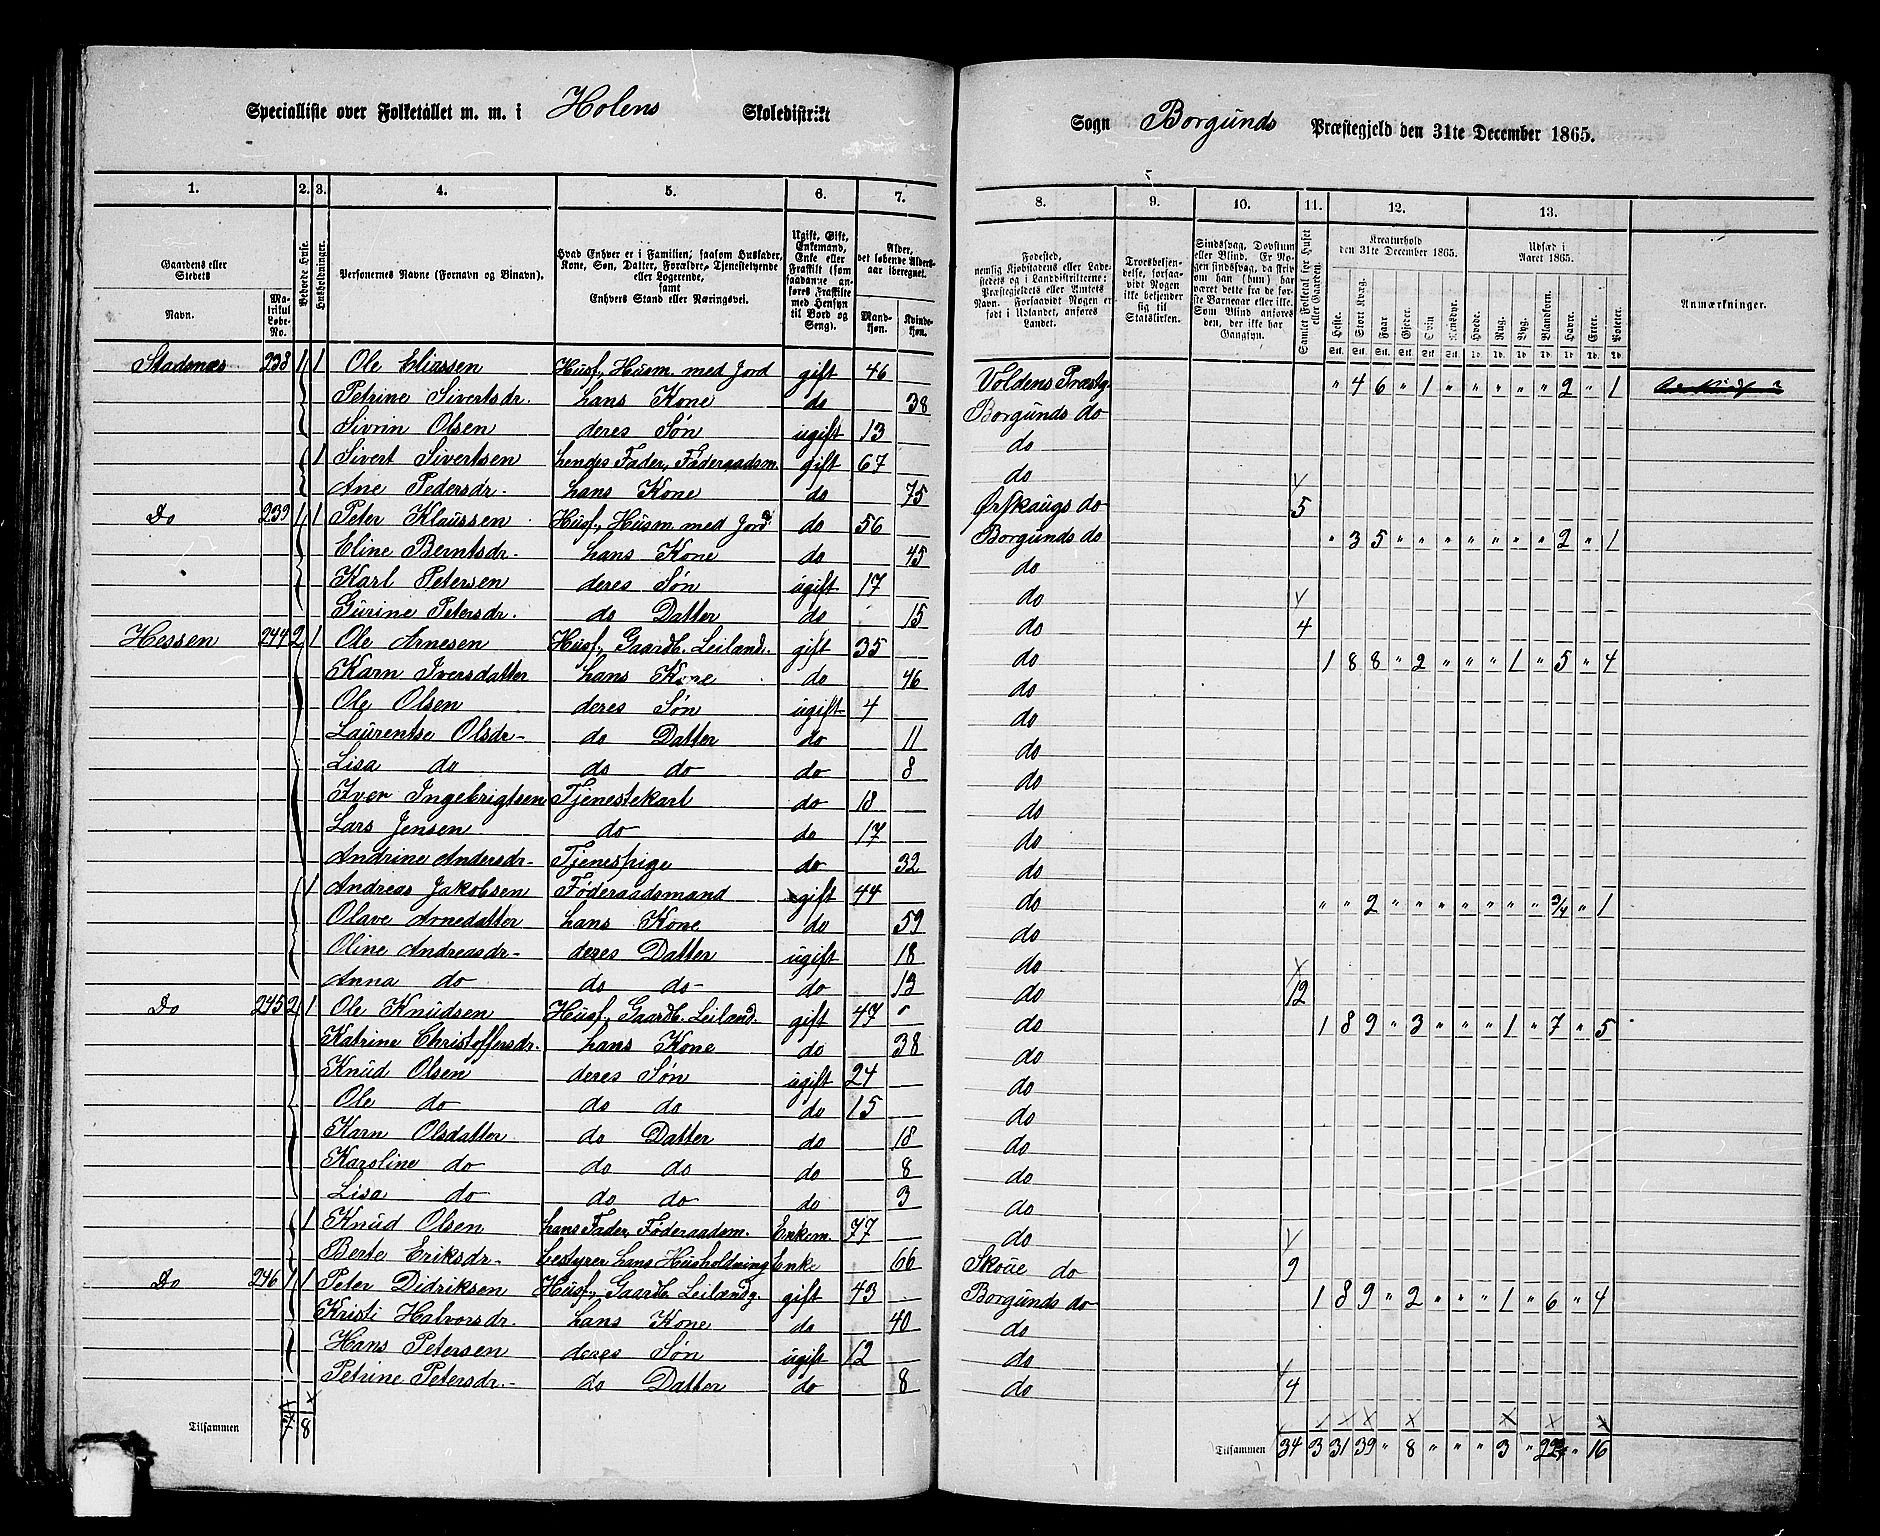 Specialliste over Folketallet m. m. i Holens Skoledistrikt
Sogn Borgunds Præstegjeld den 31te December 1865.
1. 2. 3. 4. 5. 6. 7. 8. 9. 10. 11. 12. 13.
Gaardens eller Stedets
Navn. Matrikul Løbe-No.
Beboede Huse.
Husholdninger.
Personernes Navne (Fornavn og Binavn).
Hvad Enhver er i Familien, saasom Husfader, Kone, Søn, Datter, Forældre, Tjenestetyende eller Logerende, samt Enhvers Stand eller Næringsvei.
Ugift, Gift, Enkemand, Enke eller Fraskilt (som saadanne anføres Fraskilte med Hensyn til Bord og Seng).
Alder, det løbende Aldersaar iberegnet.
Mandkjøn. Kvindekjøn.
Fødested, nemlig Kjøbstadens eller Ladestedets og i Landdistrikterne: Præstegjeldets eller Amtets Navn. Forsaavidt Nogen er født i Udlandet, anføres Landet.
Troesbekjendelse, forsaavidt Nogen ikke bekjender sig til Statskirken.
Sindssvag, Døvstum eller Blind. Er Nogen sindssvag, da skrives om han (hun) har været dette fra de første Barneaar eller ikke. Som Blind anføres den, der ikke har Gangsyn.
Samlet Folketal for Huset eller Gaarden.
Kreaturhold den 31te December 1865.
Heste. Stort Kvæg. Faar. Gjeder. Svin. Rensdyr.
Udsæd i Aaret 1865.
Hvede. Rug. Byg. Blandkorn. Havre. Erter. Poteter.
Anmærkninger.
Stadsnæs 238 1 1 Ole Eliassen Husf., Husm. med Jord gift 46 Voldens Præstg. " 4 6 " 1 " " " " " 2 " 1
Petrine Sivertsdr. hans Kone do 38 Borgunds do
Sivrin Olsen deres Søn ugift 13 do
1 Sivert Sivertsen hendes Fader, Føderaadsm. gift 67 do
Ane Pedersdr. hans Kone do 75 Ørskaugs do 5
Do 239 1 1 Peter Klaussen Husf., Husm. med Jord do 56 Borgunds do " 3 5 " " " " " " " 2 " 1
Eline Berntsdr. hans Kone do 45 do
Karl Petersen deres Søn ugift 17 do
Gurine Petersdr. do Datter do 15 do 4
Hessen 244 2 1 Ole Arnesen Husf., Gaardb. Leiland. gift 35 do 1 8 8 " 2 " " " 1 " 5 " 4
Karn Iversdatter hans Kone do 46 do
Ole Olsen deres Søn ugift 4 do
Laurentse Olsdr. do Datter do 11 do
Lisa do do do do 8 do
Iver Ingebrigtsen Tjenestekarl do 18 do
Lars Jensen do do 17 do
Andrine Andersdr. Tjenespige do 32 do
1 Andreas Jakobsen Føderaadsmand gift 44 do " " 2 " " " " " " " 3/4 " 1
Olave Arnedatter hans Kone do 59 do
Oline Andreasdr. deres Datter ugift 18 do
Anna do do do do 13 do 12
Do 245 2 1 Ole Knudsen Husf., Gaardb. Leiland. gift 47 do 1 8 9 " 3 " " " 1 " 7 " 5
Katrine Christoffersdr. hans Kone do 38 do
Knud Olsen deres Søn ugift 24 do
Ole do do do do 15 do
Karn Olsdatter do Datter do 18 do
Karsline do do do do 8 do
Lisa do do do do 3 do
1 Knud Olsen hans Fader, Føderaadsm. Enkem. 77 do
Berte Eriksdr. bestyrer hans Husholdning Enke 66 Skoue do 9
Do 246 1 1 Peter Didriksen Husf., Gaardb. Leilændg. gift 43 Borgunds do 1 8 9 " 2 " " " 1 " 6 " 4
Kristi Halvorsdr. hans Kone do 40 do
Hans Petersen deres Søn ugift 12 do
Petrine Petersdr. do Datter do 8 do 4
Tilsammen 7 8
Tilsammen 34 3 31 39 " 8 " " " 3 " " 16